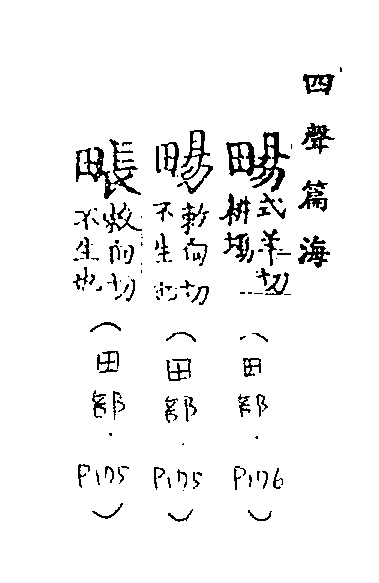 四聲篇海
畼 式羊切 耕 (田部.P176)
畼 敕向切 不生也 (田部.P175)
敕向切 不生也 (田部.P175)